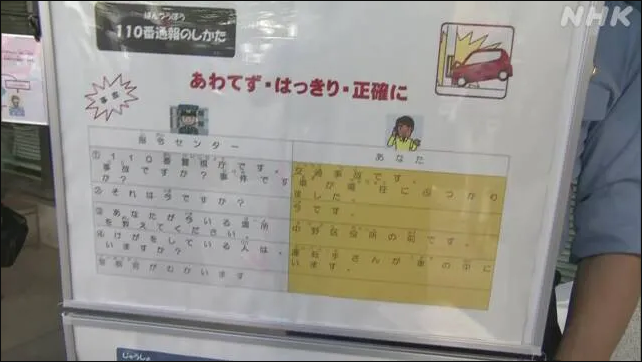 NHK
ばんつうほう
110番通報のしかた
あわてず・はっきり・正確に
事故
指令センター
あなた
①110番警視庁です。
事故ですか?事件です
か?
交通事故です。
車が電柱にぶつかり
ました。
②それは今ですか?
今です。
③あなたが今いる場所
を教えてください。
中野区役所の前です。
④けがをしている人は
いますか?
運転手さんが車の中に
います。
警察官がむかいます
じゅうしょ